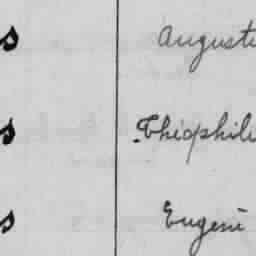 s Auguste
s Théophile
s Eugène